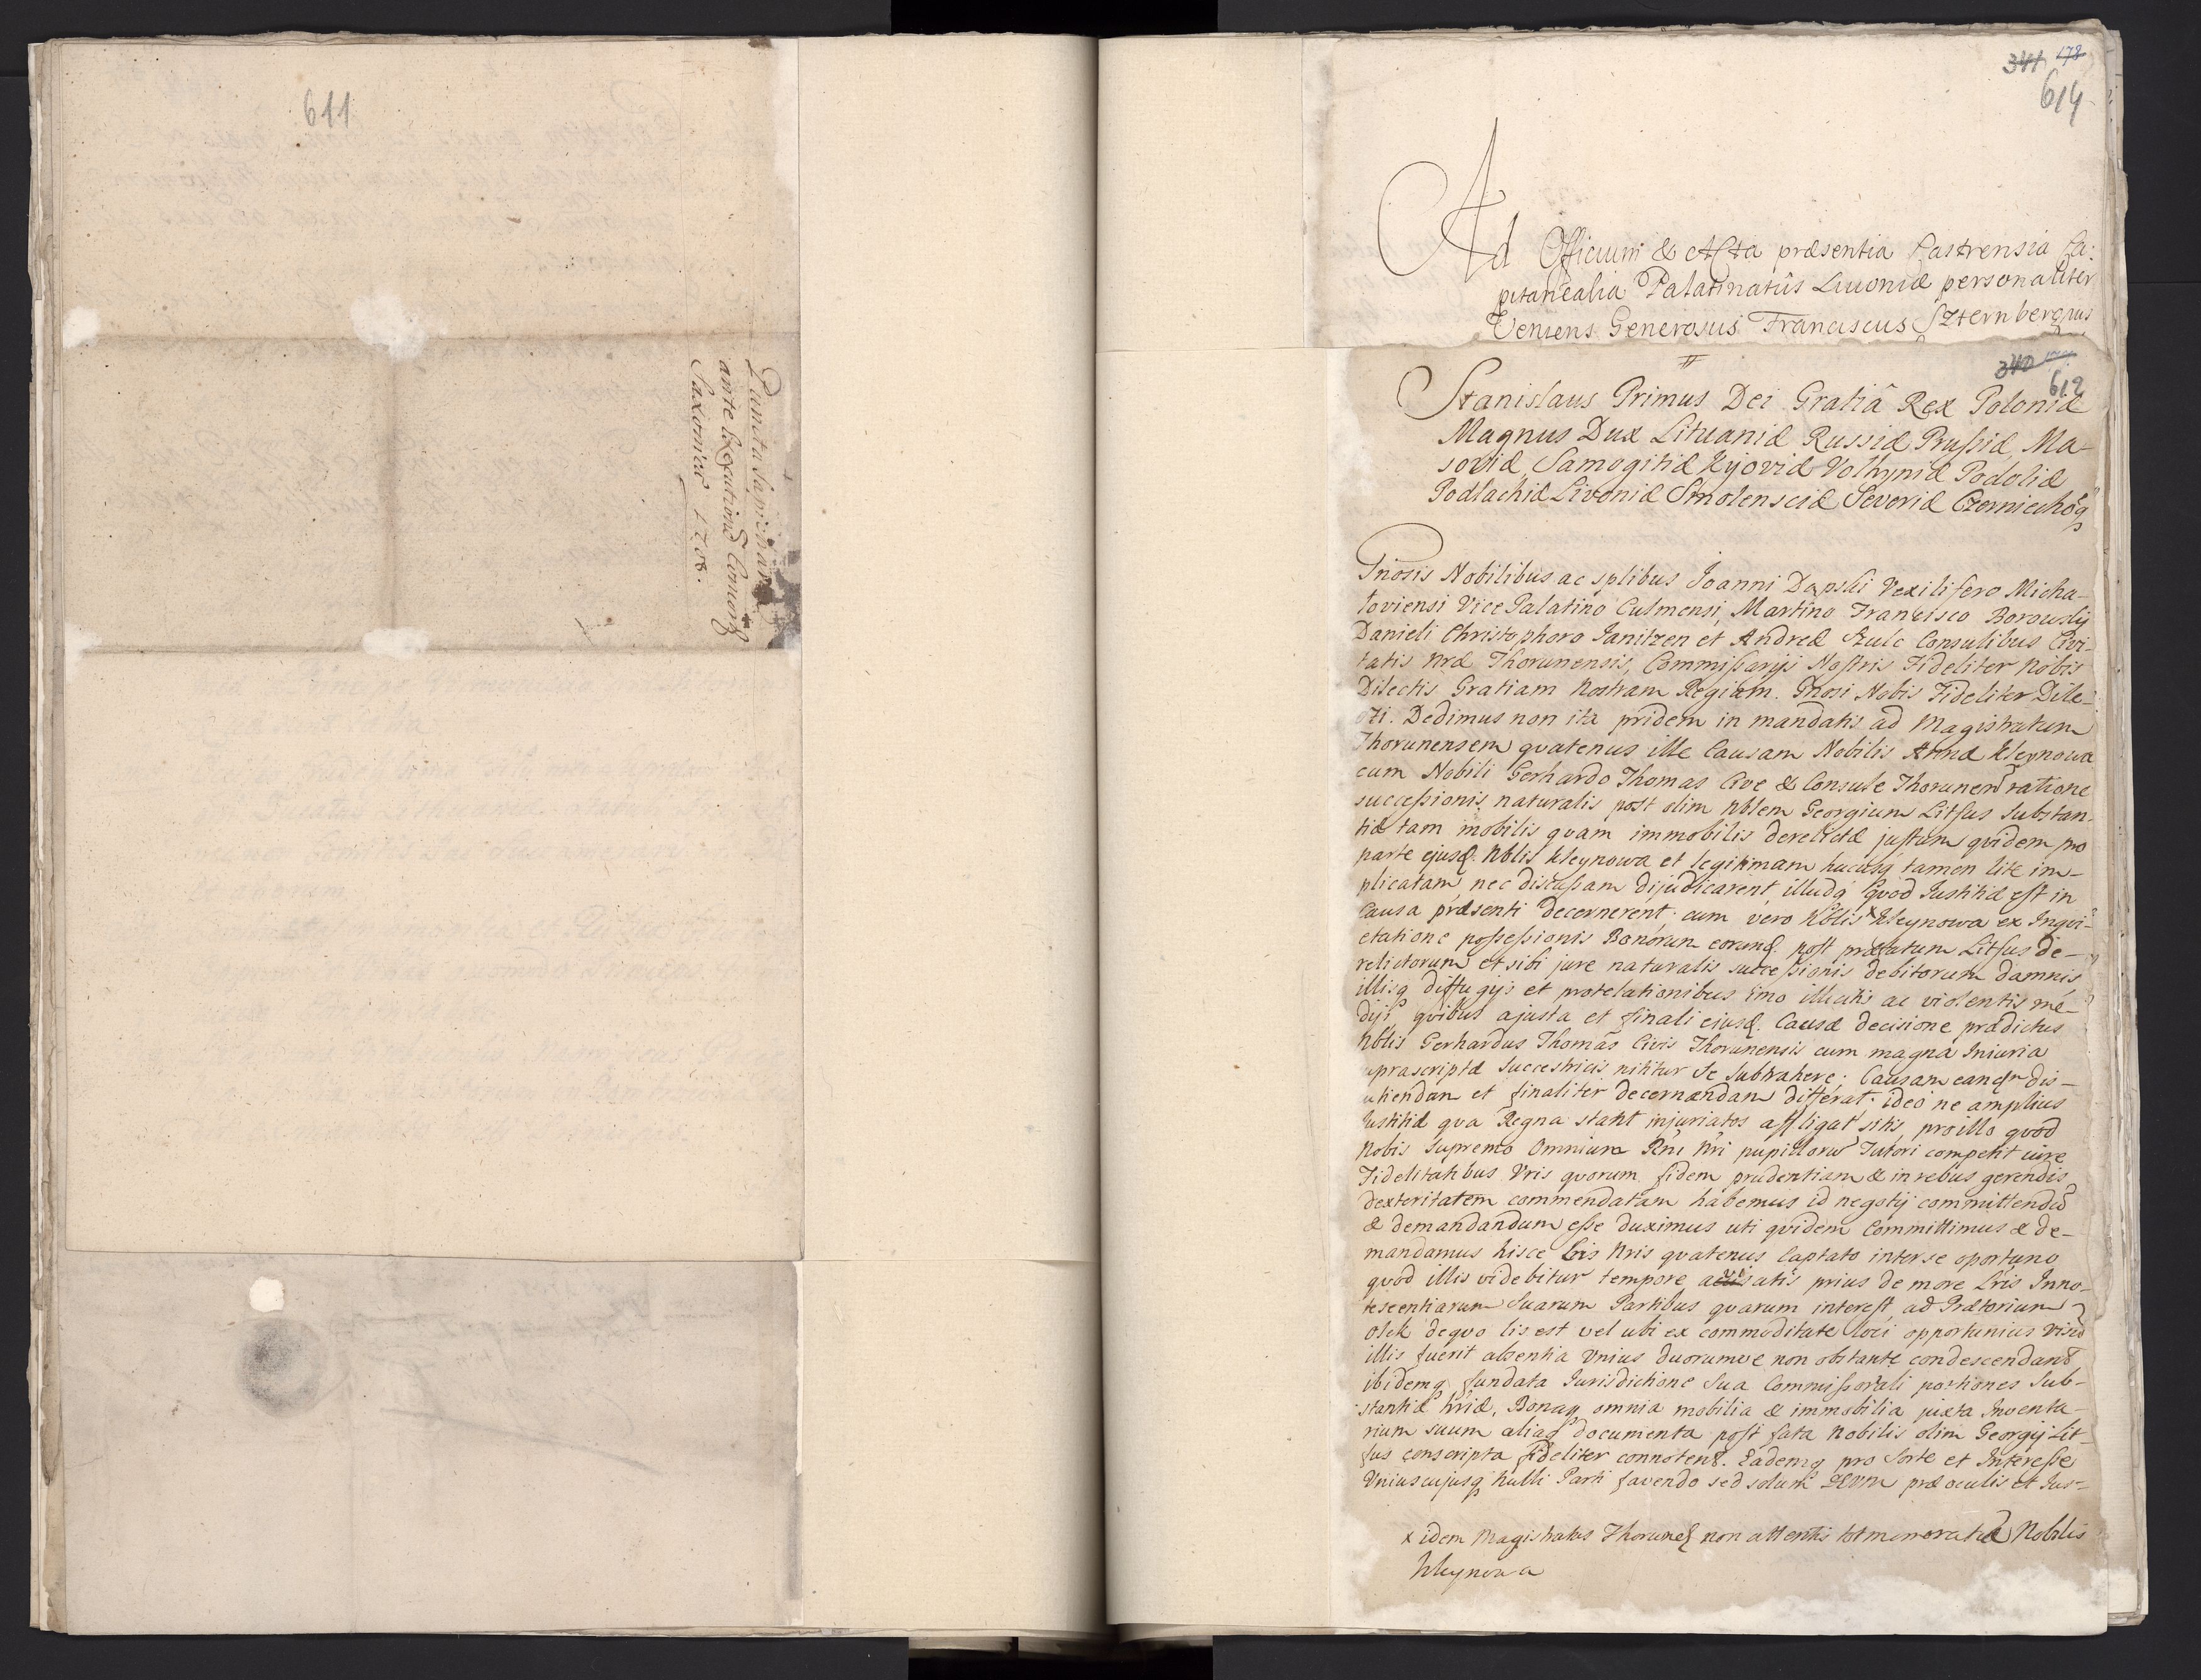 611
Punita Sapiehar
ante Exequtione Comorz
Saxonicar 1708.
341 178
614
Ad Officium & Acta præsentia Castrensia Ca:
pitanealia Palatinatûs Livoniæ personaliter
Veniens Generosus Franciscus Szternbergus
340
612
Stanislaus Primus Dei Gratiâ Rex Poloniæ
Magnus Dux Lituaniæ Russiæ Prussiæ, Ma-
soviæ, Samogitiæ Kijoviæ Volhyniæ Podoliæ
Podlachiæ Livoniæ Smolensciæ Severiæ Czerniechoq
Gnosis Nobilibus ac splibus Joanni Dąpski Vexillifero Micha-
loviensi Vice Palatino Culmensi, Martino Francisco Borowsky
Danieli Christophoro Janitzen et Andreæ Szulc Consulibus Civi-
tatis Nræ Thorunensis, Commissarijs Nostris Fideliter Nobis
Dilectis Gratiam Nostram Regiam. Gnosi Nobis Fideliter Dile-
cti. Dedimus non ita pridem in mandatis ad Magistratum
Thorunensem qvatenus ille Causam Nobilis Annæ Kleynowa
cum Nobili Gerhardo Thomas Cive & Consule Thorunen ratione
successionis naturalis post olim Nblem Georgium Litsus substan-
tiæ tam mobilis qvam immobilis derelictæ justam qvidem pro
parte ejusq. Nblis Kleynowa et legitimam hucusq tamen lite im-
plicatam nec discussam dijudicarent, illudq qvod Iustitiæ est in
Causa præsenti decernerent. cum vero x Nblis Kleynowa ex Inqvi-
etatione possessionis Bonorum eorund. post præfatum Litsus de-
relictorum et sibi jure naturalis successionis debitorum damnis
illisq diffugijs et protelationibus imo illicitis ac violentis me-
dijs qvibus ajusta et finali ejusd. Causæ decisione prædictus
Nblis Gerhardus Thomas Civis Thorunensis cum magna Iniuria
upra scriptæ Successtricis nititur se subtrahere; Causam eandm dis-
utiendam et finaliter decernendam differat. ideo ne amplius
Iustitiæ qva Regna stant injuriatos affligat sitis pro illo qvod
Nobis supremo Omnium Rni Nri pupillorum Tutori competit iure
Fidelitatibus Vris qvorum fidem prudentiam & in rebus gerendis
dexteritatem commendatam habemus id negotij committendum
& demandandum esse duximus uti qvidem Committimus & de-
mandamus hisce Lris Nris qvatenus Captato inter se oportuno
qvod illis videbitur tempore avisatis prius de more Lris Inno-
tescentiarum suarum Partibus qvarum interest ad Prætorium
Olek de qvo lis est vel ubi ex commoditate loci opportunius visum
illis fuerit absentia Vnius duorumve non obstante condescendant
ibidemq fundata Iurisdictione sua Commissoriali portiones sub-
stantiæ hriæ, Bonaq omnia mobilia & immobilia juxta Inventa-
rium suum aliaq documenta post fata Nobilis olim Georgij Lit-
sus conscripta fideliter connotent. Eademq pro Sorte et Interesse
Vniuscujusq Nulli Parti favendo sed solum DEVM præ oculis et Ius-
x idem Magistratus Thorunes non attentis tot memoratæ Nobilis
Kleynowa